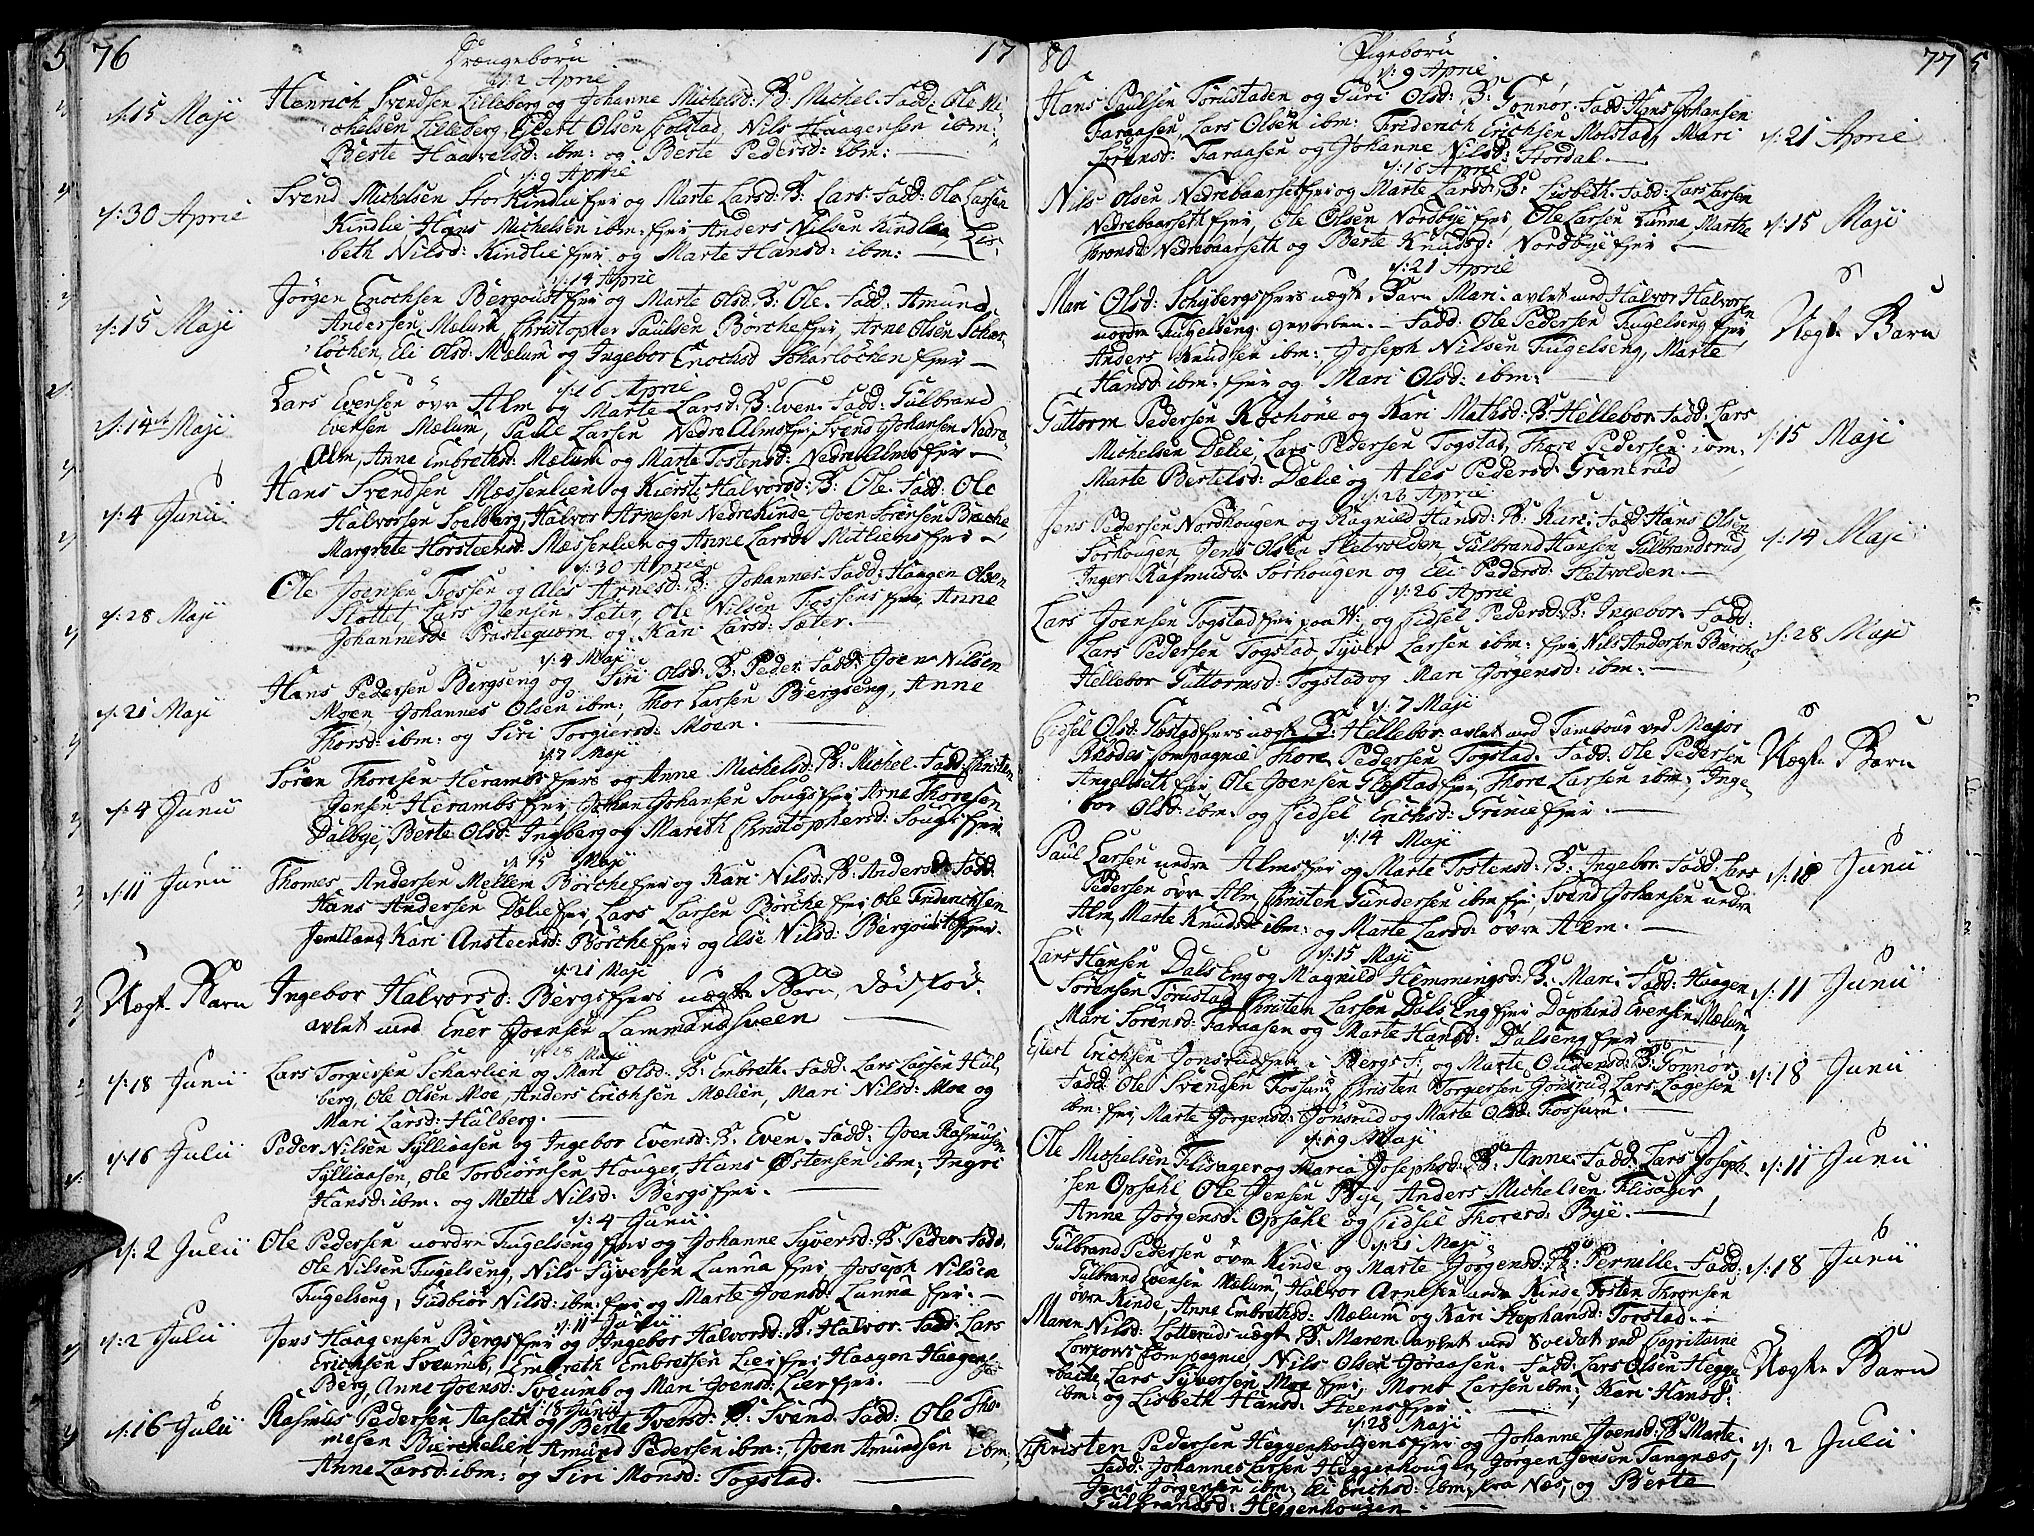 76 Drængebørn 17
d: 2 April
d: 15 Maji Henrich Svendsen Lilleberg og Johanne Michelsd: B: Michel. Fadd: Ole Mi-
chelsen Lilleberg, Ejlert Olsen Holstad, Nils Haagensen ibm:
Berte Haavelsd: ibm: og Berte Pedersd: ibm:
d: 9 April
d: 30 April Svend Michelsen Stor Kindlie Ejer og Marte Larsd: B: Lars. Fadd: Ole Larsen
Kindlie Hans Michelsen ibm: Ejer Anders Nilsen Kindlie, Lis-
beth Nilsd: Kindlie Ejer og Marte Hansd: ibm:
d: 14 April
d: 15 Maji Jörgen Enochsen Bergqust Ejer og Marte Olsd: B: Ole. Fadd: Amund
Andersen Mælum, Christopher Paulsen Börche Ejer, Arne Olsen Schar-
löchen, Eli Olsd: Mælum og Ingebor Enochsd Scharlöchen Ejer
d: 16 April
d: 14de Maji Lars Evensen övre Alm og Marte Larsd: B: Even. Fadd: Gulbrand
Evensen Mælum, Paul Larsen Nedre Alms Ejer, Svend Johansen Nedre
Alm, Anne Embrethsd: Mælum og Marte Tostensd: Nedre Alms Ejer
d: 4 Junii Hans Svendsen Messenlien og Kiersti Halvorsd: B: Ole. Fadd: Ole
Halvorsen Soelberg, Halvor Arnesen Nedre Kinde Joen Sörensen Breche,
Margrete Thorsteensd: Messenlien og Anne Larsd: Mitliens Ejer
d: 30 April
d: 28 Maji Ole Joensen Fossen og Ales Arnesd: B: Johannes. Fadd: Haagen Olsen
Slottet, Lars Hansen Sæter, Ole Nilsen Fossens Ejer, Anne
Johannesd: Prästequærn og Kari Larsd: Sæter.
d: 4 Maji
d: 21 Maji Hans Pedersen Bergseng og Siri Olsd: B: Peder. Fadd: Joen Nilsen
Moen Johannes Olsen ibm: Thor Larsen Bergseng, Anne
Thorsd: ibm: og Siri Torgiersd: Moen.
d: 7 Maji
d: 4 Junii Sören Thoresen Herambs Ejer og Anne Michelsd: B: Michel. Fadd: Christen
Jensen Herambs Ejer, Johan Johansen Sougs Ejer Arne Thoresen
Dalbye, Berte Olsd: Ingberg og Mareth Christophersd: Sougs Ejer.
d: 15 Maji
d: 11 Junii Thomes Andersen Mellem Börche Ejer og Kari Nilsd: B: Anders. Fadd:
Hans Andersen Dælie Ejer, Lars Larsen Börche Ejer, Ole Friderichsen
Jemtland, Kari Ansteensd: Börche Ejer og Else Nilsd: Bergqust Ejer.
d: 21 Maji
Uægte Barn Ingebor Halvorsd: Bergs Ejers uægte Barn, dödfød.
avlet med Ener Joensen Lammandsveen
d: 28 Maji
d: 18 Junii Lars Torgersen Scharlien og Mari Olsd: B: Embreth. Fadd: Lars Larsen Hul-
berg, Ole Olsen Moe, Anders Erichsen Mælien, Mari Nilsd: Moe og
Mari Larsd: Hulberg.
d: 16 Julii Peder Nilsen Sylliaasen og Ingebor Evensd: B: Even. Fadd: Joen Rasmusen
Sylliaasen, Ole Torbiörnsen Houger, Hans Østensen ibm: Ingri
Hansd: ibm: og Mette Nilsd: Bergs Ejer.
d: 4 Junii
d: 2 Julii Ole Pedersen nordre Fugelseng Ejer og Johanne Syversd: B: Peder. Fadd:
Ole Nilsen Fugelseng, Nils Syversen Lunna Ejer Joseph Nilsen
Fugelseng, Gudbiör Nilsd: ibm: Ejer og Marte Joensd: Lunna Ejer.
d: 11 Junii
d: 2 Julii Jens Haagensen Bergs Ejer og Ingebor Halvorsd: B: Halvor. Fadd: Lars
Erichsen Sveumb, Embreth Embretsen Lier Ejer Haagen Haagens:
Berg, Anne Joensd: Sveumb og Mari Joensd: Lier Ejer.
d: 18 Junii
d: 16 Julii Rasmus Pedersen Aaseth og Berte Iversd: B: Svend. Fadd: Ole Tho-
mesen Bierchelien, Amund Pedersen ibm: Joen Amundsen ibm:
Anne Larsd: ibm: og Siri Monsd: Togstad.
80 Pigebørn 77
d: 9 April
Hans Paulsen Torustaden og Guri Olsd: B: Gonnör. Fadd: Hans Johansen d: 21 April
Faraasen, Lars Olsen ibm: Friderich Erichsen Molstad, Mari
Sörensd: Faraasen og Johanne Nilsd: Stordal.
d: 16 April
Nils Olsen Nedrebaarseth Ejer og Marte Larsd: B: Lisbeth. Fadd: Lars Larsen d: 15 Maji
Nedrebaarseth Ejer, Ole Olsen Nordbye Ejer, Ole Larsen Lunna, Marthe
Thronsd: Nedrebaarseth og Berte Knudsd: Nordbye Ejer
d: 21 April
Mari Olsd: Schybergs Ejers uægte Barn Mari. avlet med Halvor Halvorsen Uægte Barn
nordre Fugelseng. Fadd: Ole Pedersen Fugelseng Ejer
Anders Knudsen ibm: Joseph Nilsen Fugelseng, Marte
Hansd: ibm: Ejer og Mari Olsd: ibm:
Guttorm Pedersen Kochone og Kari Mathsd: B: Hellebor. Fadd: Lars d: 15 Maji
Michelsen Dælie, Lars Pedersen Togstad, Thore Pedersen ibm:
Marte Bertelsd: Dælie og Ales Pedersd: Granerud
d: 23 April
Jens Pedersen Nordhougen og Ragnild Hansd: B: Kari. Fadd: Hans Olsen d: 14 Maji
Sörhougen, Jens Olsen Sletvolden, Gulbrand Hansen Gulbrandsrud,
Inger Rasmusd: Sörhougen og Eli Pedersd: Sletvolden.
d: 26 April
Lars Joensen Togstad Ejer paa W: og Sidsel Pedersd: B: Ingebor. Fadd: d: 28 Maji
Lars Pedersen Togstad, Syver Larsen ibm: Ejer Nils Andersen Börche,
Hellebor Guttormsd: Togstad og Mari Jörgensd: ibm:
d: 7 Maji
Sidsel Olsd: Glæstad Ejers uægte B: Hellebor avlet med Tambour ved Major Uægte Barn
Rædes Compagnie Thore Pedersen Togstad. Fadd: Ole Pedersen
Angelseth Ejer, Ole Joensen Glæstad Ejer, Thore Larsen ibm: Inge-
bor Olsd: ibm: og Sidsel Erichsd: Grinie Ejer.
d: 14 Maji
Paul Larsen nedre Alms Ejer og Marte Tostensd: B: Ingebor. Fadd: Lars d: 18 Junii
Pedersen övre Alm, Christen Gundersen ibm Ejer, Svend Johansen nedre
Alm, Marte Knudsd: ibm: og Marte Larsd: övre Alm.
d: 15 Maji
Lars Hansen Dals Eng og Magnild Hemmingsd: B: Mari. Fadd: Haagen d: 11 Junii
Sörensen Torustad, Christen Larsen Dals Eng Ejer Daphind Evensen Mælum,
Mari Sörensd: Faraasen og Marte Hansd: Dalseng Ejer
Elert Erichsen Jonsrud Ejer i Bergs F. og Marte Oudensd: B: Gonnör. d: 18 Junii
Fadd: Ole Svendsen Fossum, Christen Torgersen Jonsrud, Lars Lagesen
ibm: Ejer, Marte Jörgensd: Jonsrud og Marte Olsd: Fossum.
d: 19 Maji
Ole Michelsen Flisager og Maria Josephsd: B: Anne. Fadd: Lars Joseph- d: 11 Junii
sen Opsahl, Ole Jensen Bye, Anders Michelsen Flisager,
Anne Jörgensd: Opsahl og Sidsel Thoresd: Bye.
d: 21 Maji
Gulbrand Pedersen övre Kinde og Marte Jörgensd: B: Pernille. Fadd: d: 18 Junii
Gulbrand Evensen Mælum, Halvor Arnesen nedre Kinde Tosten Thronsen
övre Kinde, Anne Embrethsd: Mælum og Kari Stephansd: Torstad.
Maren Nilsd: Lotteruds uægte B: Maren avlet med Soldat ved Capitaine Uægte Barn
Lowzows Compagnie, Nils Olsen Goraasen. Fadd: Lars Olsen Hegge-
bache, Lars Syversen Moe Ejer, Mons Larsen ibm: Kari Hansd:
ibm: og Lisbeth Hansd: Steens Ejer
d: 28 Maji
Christen Pedersen Heggenhougens Ejer og Johanne Joensd: B: Marte. d: 2 Julii
Fadd: Johannes Larsen Heggenhougen Jörgen Jensen Tangnæs,
Jens Jörgensen ibm: Eli Erichsd: ibm, fra Næs, og Berte
Gulbrandsd: Heggenhougen.